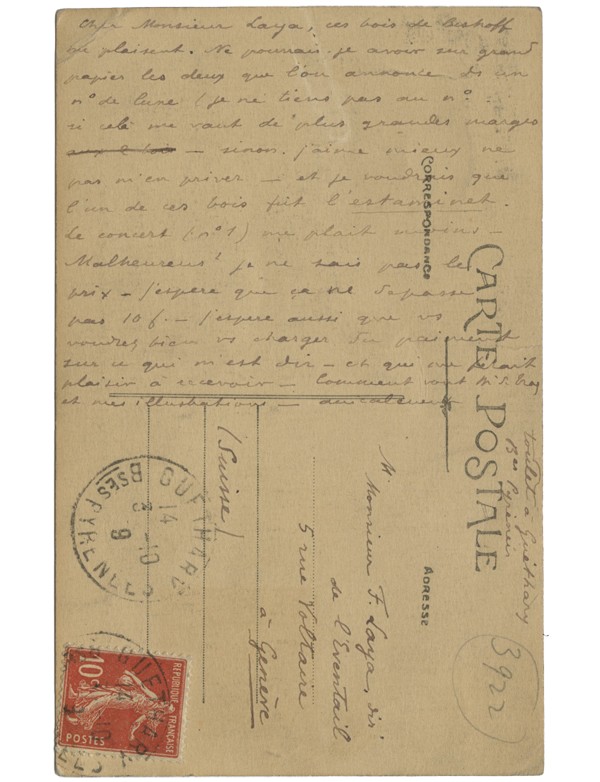 Cher Monsieur Laya, ces bois de Bishoff
me plaisent. Ne pourrais-je avoir sur grand
papier les deux que l'on annonce ds un
n° de luxe (je ne tiens pas au n°
si cela me vaut de plus grandes marges
— sinon j'aime mieux ne
pas m'en priver — et je voudrais que
l'un de ces bois fut l'estaminet.
Le concert (n° 1) me plait moins.
Malheureust je ne sais pas le
prix — j'espere que ça ne depasse
pas 10 f. — j'espere aussi que vs
voudrez bien vs charger du paiement
sur ce qui m'est dû — et qui me ferait
plaisir à recevoir — Comment vont
et mes illustrations —
CORRESPONDANCE
CARTE POSTALE
ADRESSE
Toulet à Guéthary
Bses Pyrénées
M. Monsieur F. Laya, dir
de l'Eventail
5 rue Voltaire
à Genève
(Suisse)
3922
GUETHARY
14
3 -10
9
BSES PYRENEES
GUETHARY
14
RÉPUBLIQUE FRANÇAISE
10c
POSTES